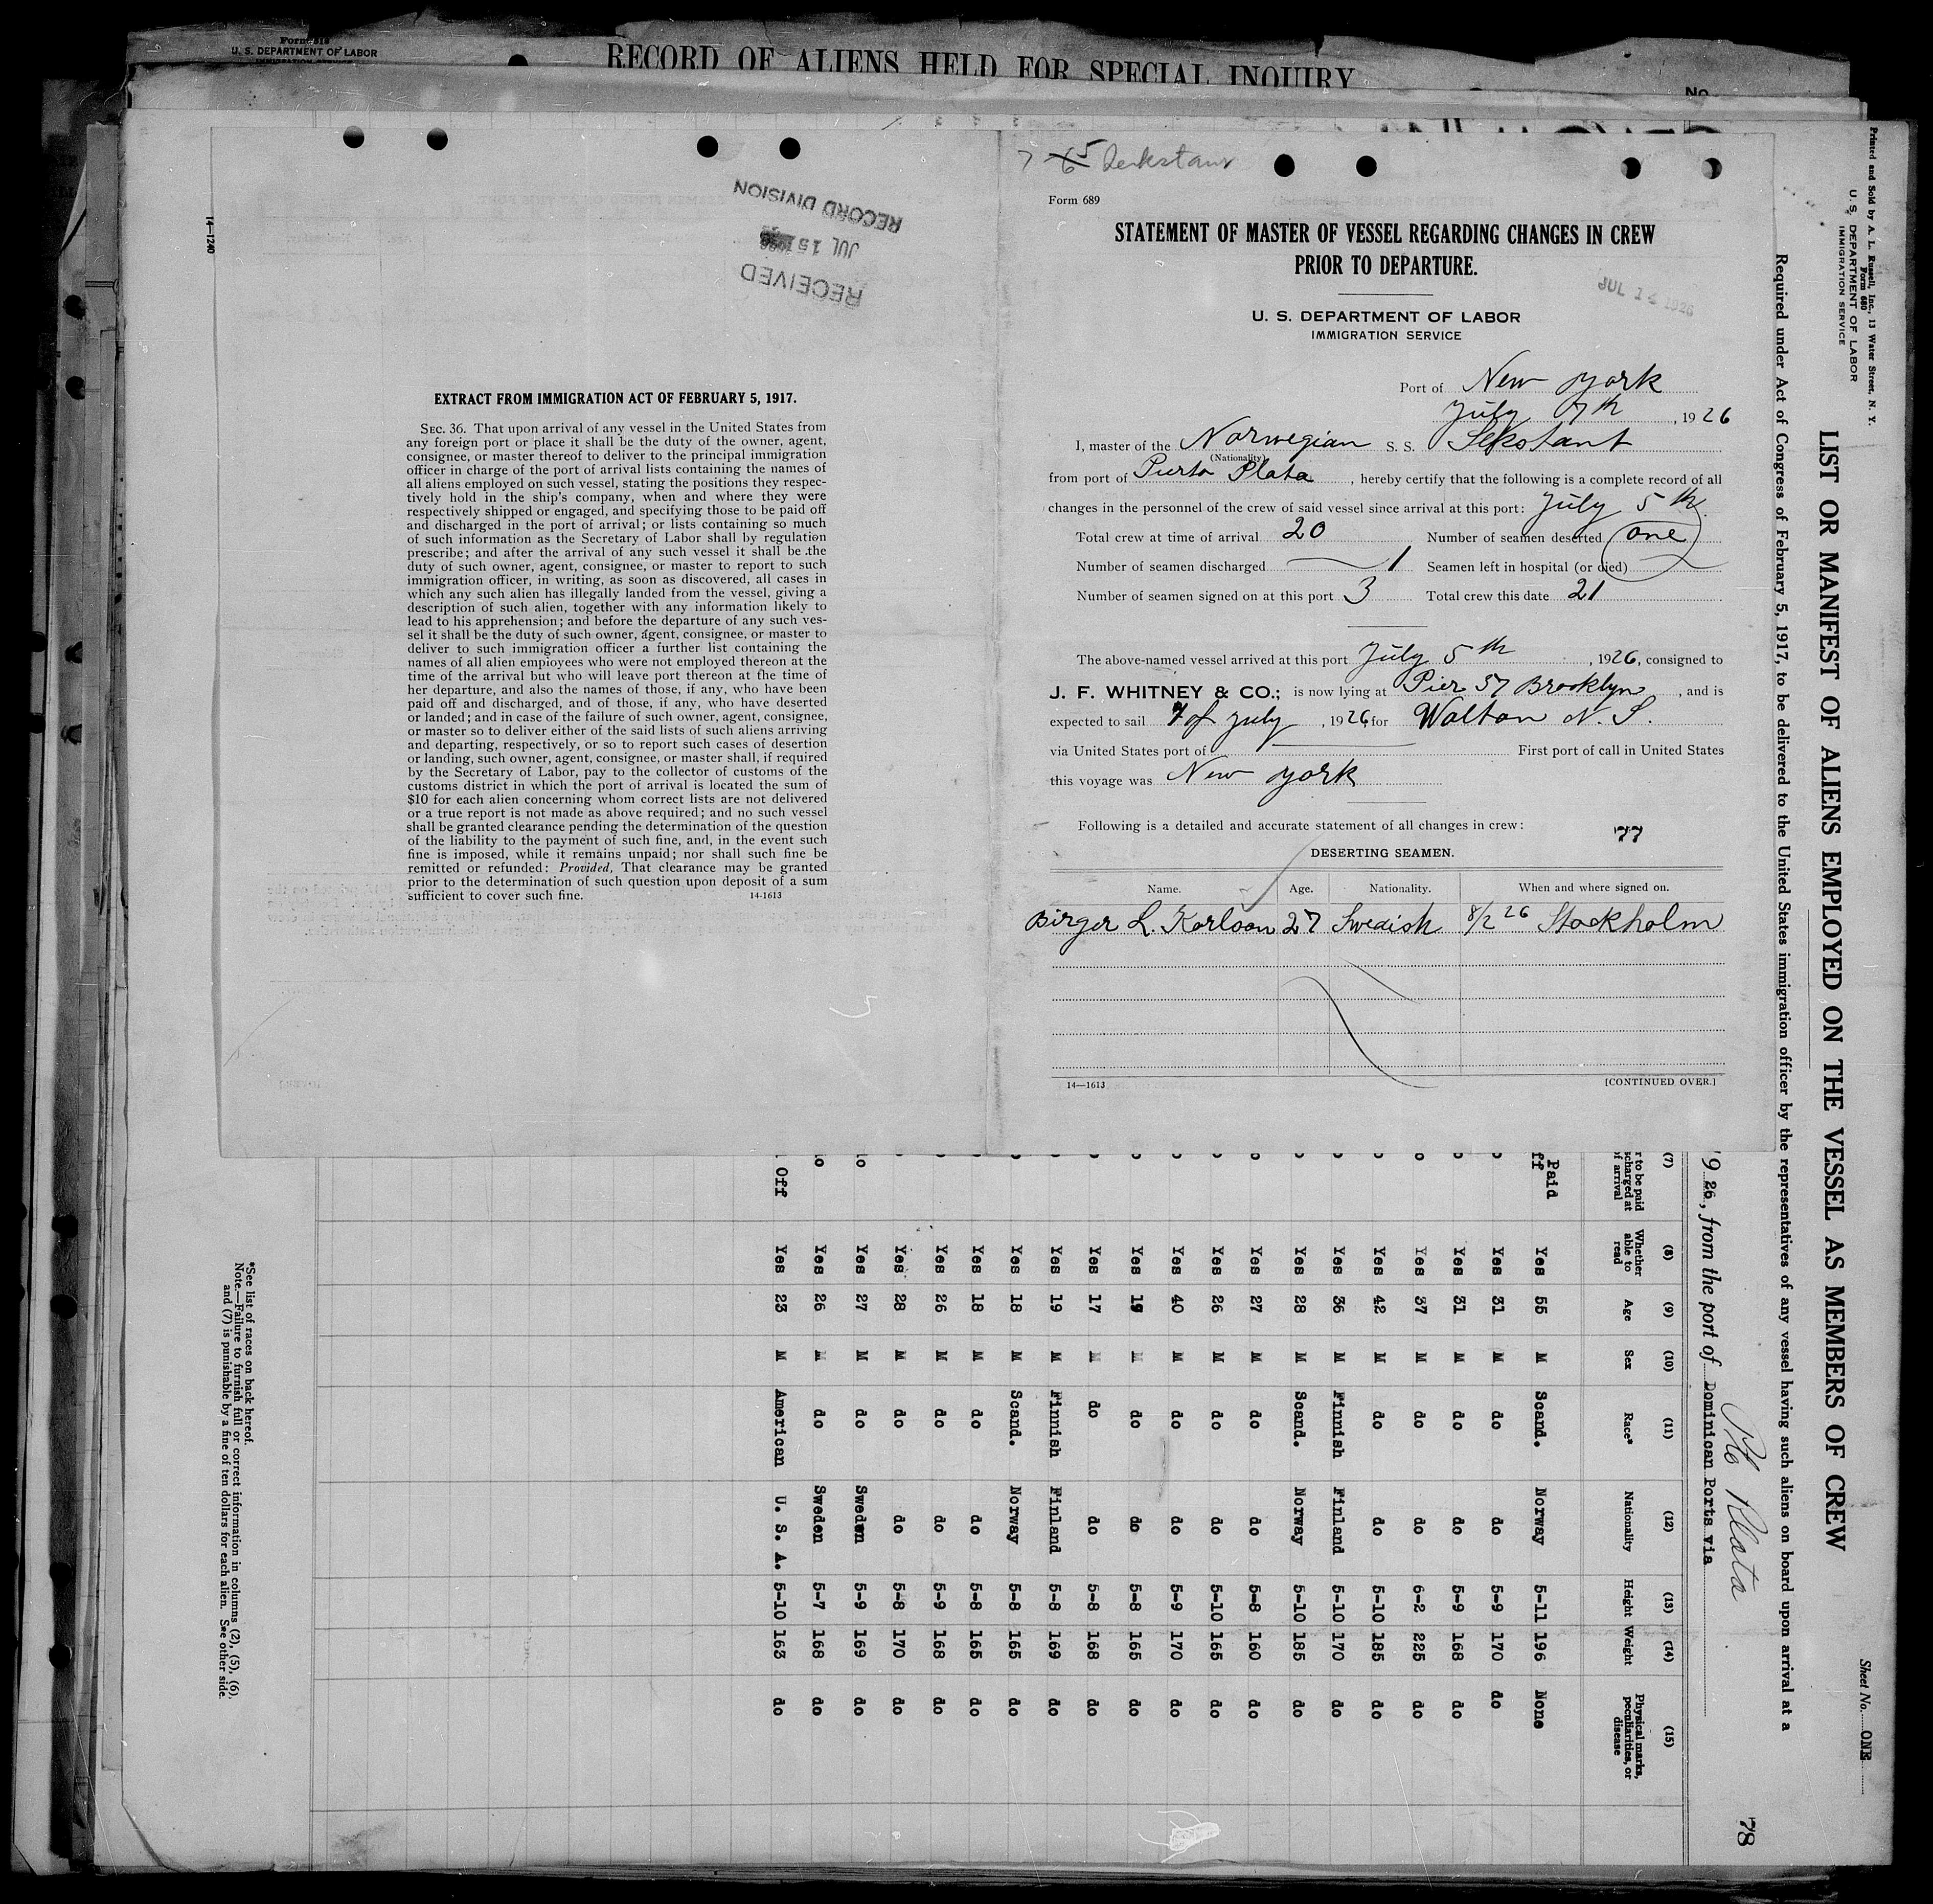 Form 819
U. S. DEPARTMENT OF LABOR
IMMIGRATION SERVICE
RECORD OF ALIENS HELD FOR SPECIAL INQUIRY
No.
14—1240
RECORD DIVISION
JUL 15
RECEIVED
EXTRACT FROM IMMIGRATION ACT OF FEBRUARY 5, 1917.
SEC. 36. That upon arrival of any vessel in the United States from
any foreign port or place it shall be the duty of the owner, agent,
consignee, or master thereof to deliver to the principal immigration
officer in charge of the port of arrival lists containing the names of
all aliens employed on such vessel, stating the positions they respec-
tively hold in the ship's company, when and where they were
respectively shipped or engaged, and specifying those to be paid off
and discharged in the port of arrival; or lists containing so much
of such information as the Secretary of Labor shall by regulation
prescribe; and after the arrival of any such vessel it shall be the
duty of such owner, agent, consignee, or master to report to such
immigration officer, in writing, as soon as discovered, all cases in
which any such alien has illegally landed from the vessel, giving a
description of such alien, together with any information likely to
lead to his apprehension; and before the departure of any such ves-
sel it shall be the duty of such owner, agent, consignee, or master to
deliver to such immigration officer a further list containing the
names of all alien employees who were not employed thereon at the
time of the arrival but who will leave port thereon at the time of
her departure, and also the names of those, if any, who have been
paid off and discharged, and of those, if any, who have deserted
or landed; and in case of the failure of such owner, agent, consignee,
or master so to deliver either of the said lists of such aliens arriving
and departing, respectively, or so to report such cases of desertion
or landing, such owner, agent, consignee, or master shall, if required
by the Secretary of Labor, pay to the collector of customs of the
customs district in which the port of arrival is located the sum of
$10 for each alien concerning whom correct lists are not delivered
or a true report is not made as above required; and no such vessel
shall be granted clearance pending the determination of the question
of the liability to the payment of such fine, and, in the event such
fine is imposed, while it remains unpaid; nor shall such fine be
remitted or refunded: Provided, That clearance may be granted
prior to the determination of such question upon deposit of a sum
sufficient to cover such fine. 14-1613
Form 689
STATEMENT OF MASTER OF VESSEL REGARDING CHANGES IN CREW
PRIOR TO DEPARTURE.
JUL 14 1926
U. S. DEPARTMENT OF LABOR
IMMIGRATION SERVICE
Port of New york
July 7th, 1926
I, master of the Norwegian S. S. Sekstant
(Nationality)
from port of Puerto Plata, hereby certify that the following is a complete record of all
changes in the personnel of the crew of said vessel since arrival at this port: July 5th.
Total crew at time of arrival 20 Number of seamen deserted one
Number of seamen discharged 1 Seamen left in hospital (or died)
Number of seamen signed on at this port 3 Total crew this date 21
The above-named vessel arrived at this port July 5th, 1926, consigned to
J. F. WHITNEY & CO.; is now lying at Pier 37 Brooklyn, and is
expected to sail 7 of July, 1926 for Walton N. S.
via United States port of First port of call in United States
this voyage was New york
Following is a detailed and accurate statement of all changes in crew:
77
DESERTING SEAMEN.
Name. Age. Nationality. When and where signed on.
Birger L. Karlson 27 Swedish 8/2 26 Stockholm
14—1613 [CONTINUED OVER.]
Printed and Sold by A. L. Russell, Inc., 13 Water Street, N. Y.
Form 680
U. S. DEPARTMENT OF LABOR
IMMIGRATION SERVICE
Sheet No. ONE
LIST OR MANIFEST OF ALIENS EMPLOYED ON THE VESSEL AS MEMBERS OF CREW
Required under Act of Congress of February 5, 1917, to be delivered to the United States immigration officer by the representatives of any vessel having such aliens on board upon arrival at a
Pto Plata
1926, from the port of Dominican Ports via
78
(7) (8) (9) (10) (11) (12) (13) (14) (15)
r to be paid Whether able to read Age Sex Race* Nationality Height Weight Physical marks, peculiarities, or disease
charged at
of arrival
Paid ff Yes 55 M Scand. Norway 5-11 196 None
Yes 31 M do do 5-9 170 do
Yes 31 M do do 5-9 168 do
Yes 37 M do do 6-2 225 do
Yes 42 M do do 5-10 185 do
Yes 36 M Finnish Finland 5-10 170 do
Yes 28 M Scand. Norway 5-10 185 do
Yes 27 M do do 5-8 160 do
Yes 26 M do do 5-10 165 do
Yes 40 M do do 5-9 170 do
Yes 19 M do do 5-8 165 do
Yes 17 M do do 5-8 168 do
Yes 19 M Finnish Finland 5-8 169 do
Yes 18 M Scand. Norway 5-8 165 do
Yes 18 M do do 5-8 165 do
Yes 26 M do do 5-9 168 do
Yes 28 M do do 5-8 170 do
Yes 27 M do Sweden 5-9 169 do
Yes 26 M do Sweden 5-7 168 do
Off Yes 23 M American U. S. A. 5-10 163 do
*See list of races on back hereof.
Note.—Failure to furnish full or correct information in columns (2), (5), (6),
and (7) is punishable by a fine of ten dollars for each alien. See other side.